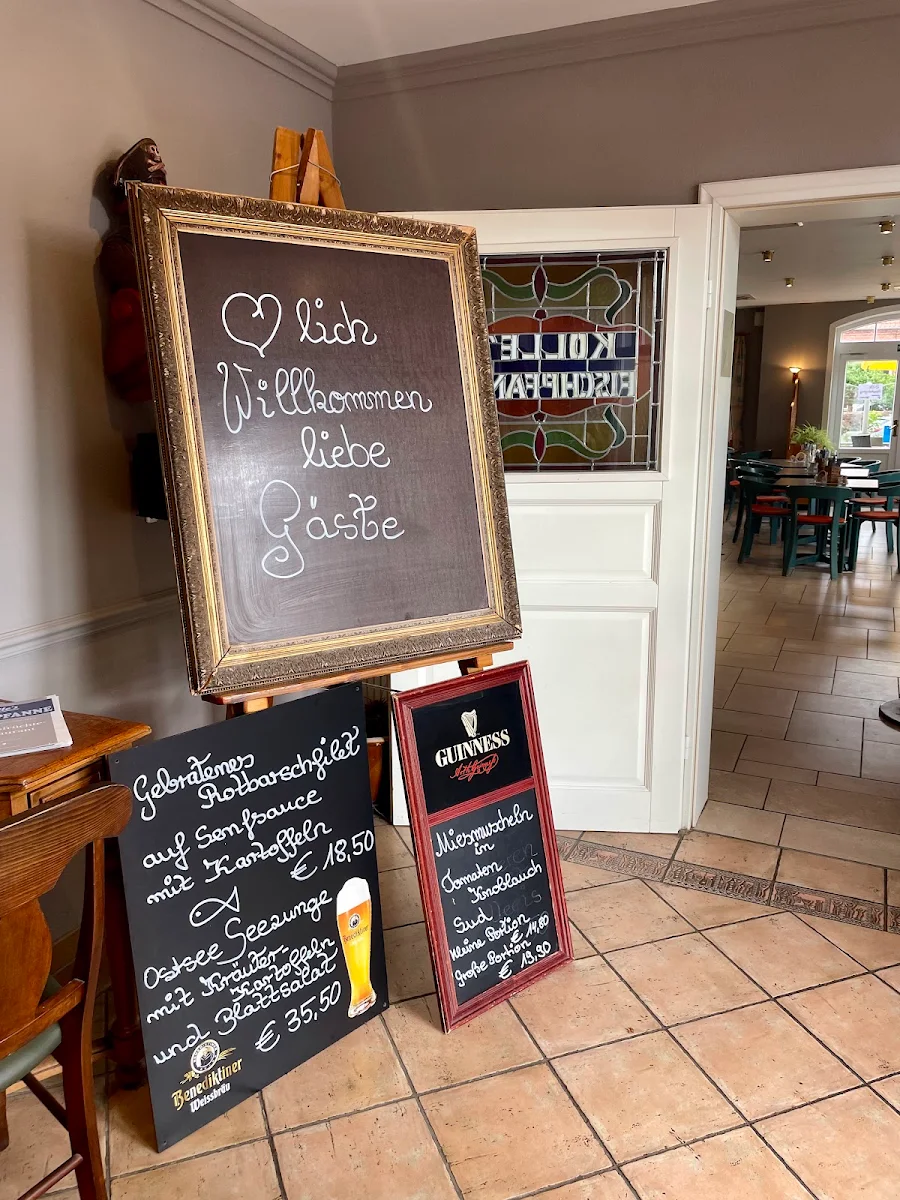 ♥ lich
Willkommen
liebe
Gäste
KOLLE'
FISCHPFAN
PFANNE
Gebratenes
Rotbarschfilet
auf Senfsauce
mit Kartoffeln
€ 18,50
Ostsee Seezunge
mit Kräuter-
Kartoffeln
und Blattsalat
€ 35,50
Benediktiner
Benediktiner
Weissbräu
GUINNESS
Miesmuscheln
in
Tomaten
Knoblauch
Sud
kleine Portion
€ 14,80
große Portion
€ 19,90